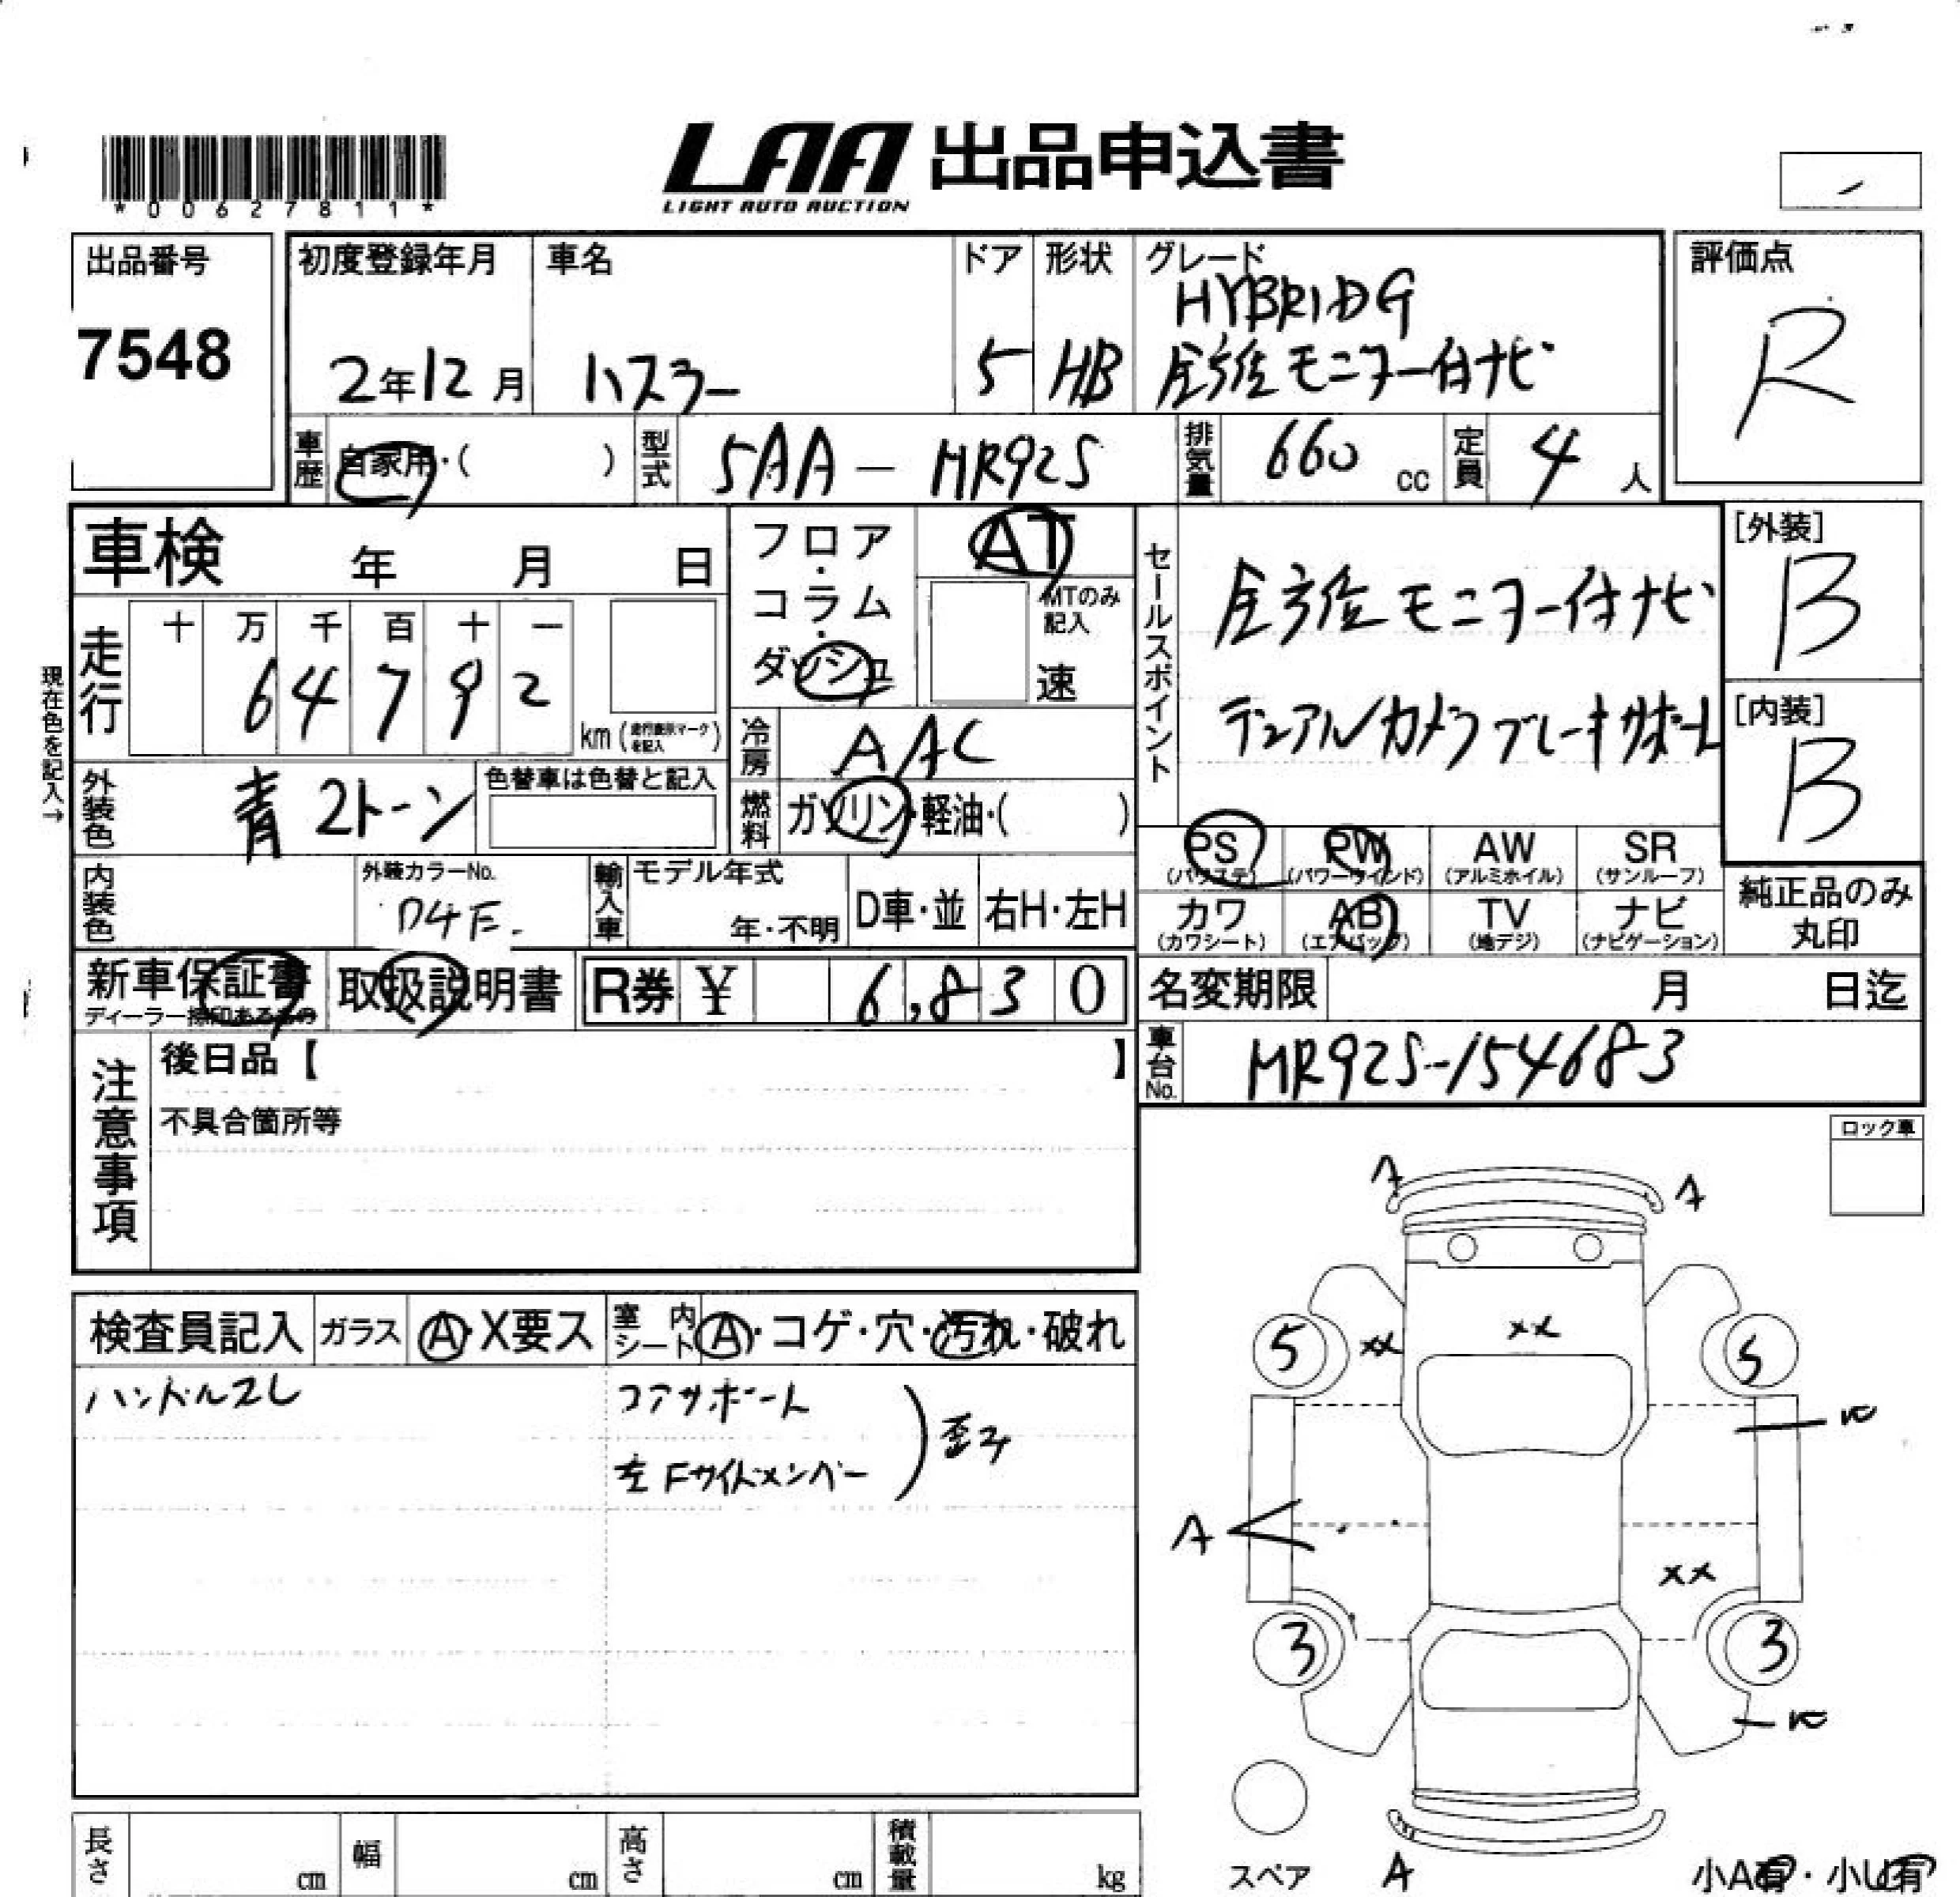 LAA 出品申込書
LIGHT AUTO AUCTION
*00627811*
出品番号
7548
初度登録年月
2年12月
車名
ハスラー
ドア
5
形状
HB
グレード
HYBRID G
全方位モニター付ナビ
評価点
R
車歴
自家用・( )
型式
5AA-MR92S
排気量
660 cc
定員
4 人
車検 年 月 日
現在色を記入→
走行
十 万 千 百 十 一
6 4 7 9 2
km (走行表示マークを記入)
フロア・コラム・ダッシュ
AT
MTのみ記入
速
冷房
AAC
燃料
ガソリン・軽油・( )
セールスポイント
全方位モニター付ナビ
デュアルカメラブレーキサポート
[外装]
B
[内装]
B
外装色
青2トーン
色替車は色替と記入
内装色
外装カラーNo.
D4E.
輸入車
モデル年式
年・不明
D車・並
右H・左H
PS
(パワステ)
PW
(パワーウインド)
AW
(アルミホイル)
SR
(サンルーフ)
カワ
(カワシート)
AB
(エアバッグ)
TV
(地デジ)
ナビ
(ナビゲーション)
純正品のみ
丸印
新車保証書
ディーラー捺印あるもの
取扱説明書
R券 ¥ 6,830
名変期限 月 日迄
車台No.
MR92S-154683
注意事項
後日品【 】
不具合箇所等
ロック車
検査員記入
ガラス
A・X要ス
室内シート
A・コゲ・穴・汚れ・破れ
ハンドルスレ
コアサポート
左Fサイドメンバー
歪み
A
A
5
XX
XX
5
A
XX
3
3
スペア
A
小A有・小U有
長さ cm
幅 cm
高さ cm
積載量 kg